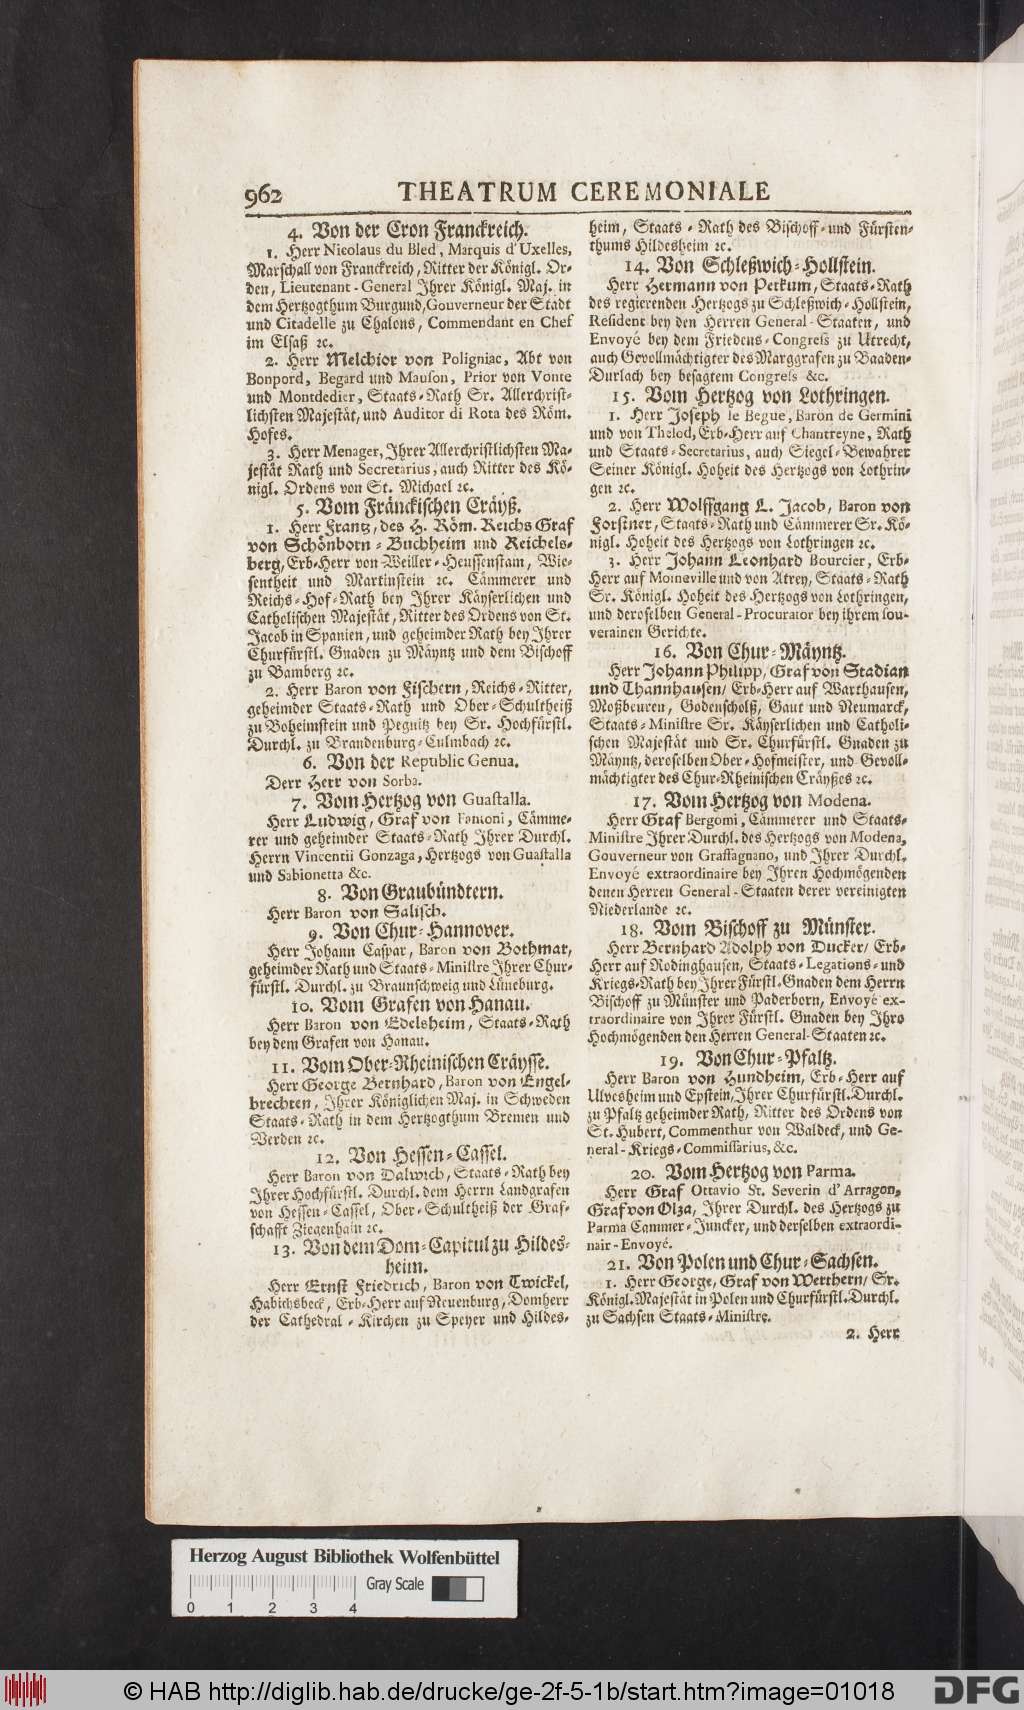 962 THEATRUM CEREMONIALE
4. Von der Cron Franckreich.
1. Herr Nicolaus du Bled, Marquis d'Uxelles,
Marschall von Franckreich, Ritter der Königl. Or-
den, Lieutenant-General Ihrer Königl. Maj. in
dem Hertzogthum Burgund, Gouverneur der Stadt
und Citadelle zu Chalons, Commendant en Chef
im Elsaß ꝛc.
2. Herr Melchior von Poligniac, Abt von
Bonpord, Begard und Mauson, Prior von Vonte
und Montdedier, Staats-Rath Sr. Allerchrist-
lichsten Majestät, und Auditor di Rota des Röm.
Hofes.
3. Herr Menager, Ihrer Allerchristlichsten Ma-
jestät Rath und Secretarius, auch Ritter des Kö-
nigl. Ordens von St. Michael ꝛc.
5. Vom Fränckischen Cräyß.
1. Herr Frantz, des H. Röm. Reichs Graf
von Schönborn-Buchheim und Reichels-
berg, Erb-Herr von Weiller-Heussenstam, Wie-
sentheit und Martinstein ꝛc. Cämmerer und
Reichs-Hof-Rath bey Ihrer Käyserlichen und
Catholischen Majestät, Ritter des Ordens von St.
Jacob in Spanien, und geheimder Rath bey Ihrer
Churfürstl. Gnaden zu Mäyntz und dem Bischoff
zu Bamberg ꝛc.
2. Herr Baron von Fischern, Reichs-Ritter,
geheimder Staats-Rath und Ober-Schultheiß
zu Boheimstein und Pegnitz bey Sr. Hochfürstl.
Durchl. zu Brandenburg-Culmbach ꝛc.
6. Von der Republic Genua.
Derr Herr von Sorba.
7. Vom Hertzog von Guastalla.
Herr Ludwig, Graf von Fantoni, Cämme-
rer und geheimder Staats-Rath Ihrer Durchl.
Herrn Vincentii Gonzaga, Hertzogs von Guastalla
und Sabionetta &c.
8. Von Graubündtern.
Herr Baron von Salisch.
9. Von Chur-Hannover.
Herr Johann Caspar, Baron von Bothmar,
geheimder Rath und Staats-Ministre Ihrer Chur-
fürstl. Durchl. zu Braunschweig und Lüneburg.
10. Vom Grafen von Hanau.
Herr Baron von Edelsheim, Staats-Rath
bey dem Grafen von Hanau.
11. Vom Ober-Rheinischen Cräysse.
Herr George Bernhard, Baron von Engel-
brechten, Ihrer Königlichen Maj. in Schweden
Staats-Rath in dem Hertzogthum Bremen und
Verden ꝛc.
12. Von Hessen-Cassel.
Herr Baron von Dalwich, Staats-Rath bey
Ihrer Hochfürstl. Durchl. dem Herrn Landgrafen
von Hessen-Cassel, Ober-Schultheiß der Graf-
schafft Ziegenhain ꝛc.
13. Von dem Dom-Capitul zu Hildes-
heim.
Herr Ernst Friedrich, Baron von Twickel,
Habichsbeck, Erb-Herr auf Neuenburg, Domherr
der Cathedral-Kirchen zu Speyer und Hildes-
heim, Staats-Rath des Bischoff- und Fürsten-
thums Hildesheim ꝛc.
14. Von Schleßwich-Hollstein.
Herr Hermann von Petkum, Staats-Rath
des regierenden Hertzogs zu Schleßwich-Hollstein,
Resident bey den Herren General-Staaten, und
Envoyé bey dem Friedens-Congress zu Utrecht,
auch Gevollmächtigter des Marggrafen zu Baaden-
Durlach bey besagtem Congress &c.
15. Vom Hertzog von Lothringen.
1. Herr Joseph le Begue, Baron de Germini
und von Thelod, Erb-Herr auf Chantreyne, Rath
und Staats-Secretarius, auch Siegel-Bewahrer
Seiner Königl. Hoheit des Hertzogs von Lothrin-
gen ꝛc.
2. Herr Wolffgang L. Jacob, Baron von
Forstner, Staats-Rath und Cämmerer Sr. Kö-
nigl. Hoheit des Hertzogs von Lothringen ꝛc.
3. Herr Johann Leonhard Bourcier, Erb-
Herr auf Moineville und von Atrey, Staats-Rath
Sr. Königl. Hoheit des Hertzogs von Lothringen,
und deroselben General-Procurator bey ihrem sou-
verainen Gerichte.
16. Von Chur-Mäyntz.
Herr Johann Philipp, Graf von Stadian
und Thannhausen/ Erb-Herr auf Warthausen,
Moßbeuren, Godenscholß, Gaut und Neumarck,
Staats-Ministre Sr. Käyserlichen und Catholi-
schen Majestät und Sr. Churfürstl. Gnaden zu
Mäyntz, deroselben Ober-Hofmeister, und Gevoll-
mächtigter des Chur-Rheinischen Cräyßes ꝛc.
17. Vom Hertzog von Modena.
Herr Graf Bergomi, Cämmerer und Staats-
Ministre Ihrer Durchl. des Hertzogs von Modena,
Gouverneur von Graffagnano, und Ihrer Durchl.
Envoyé extraordinaire bey Ihren Hochmögenden
denen Herren General-Staaten derer vereinigten
Niederlande ꝛc.
18. Vom Bischoff zu Münster.
Herr Bernhard Adolph von Ducker/ Erb-
Herr auf Rodinghausen, Staats-Legations- und
Kriegs-Rath bey Ihrer Fürstl. Gnaden dem Herrn
Bischoff zu Münster und Paderborn, Envoyé ex-
traordinaire von Ihrer Fürstl. Gnaden bey Ihro
Hochmögenden den Herren General-Staaten ꝛc.
19. Von Chur-Pfaltz.
Herr Baron von Hundheim, Erb-Herr auf
Ulvesheim und Epstein, Ihrer Churfürstl. Durchl.
zu Pfaltz geheimder Rath, Ritter des Ordens von
St. Hubert, Commenthur von Waldeck, und Ge-
neral-Kriegs-Commissarius, &c.
20. Vom Hertzog von Parma.
Herr Graf Ottavio St. Severin d'Arragon,
Graf von Olza, Ihrer Durchl. des Hertzogs zu
Parma Cammer-Juncker, und derselben extraordi-
nair-Envoyé.
21. Von Polen und Chur-Sachsen.
1. Herr George, Graf von Werthern/ Sr.
Königl. Majestät in Polen und Churfürstl. Durchl.
zu Sachsen Staats-Ministre.
2. Herr
Herzog August Bibliothek Wolfenbüttel
Gray Scale
0 1 2 3 4
© HAB http://diglib.hab.de/drucke/ge-2f-5-1b/start.htm?image=01018
DFG